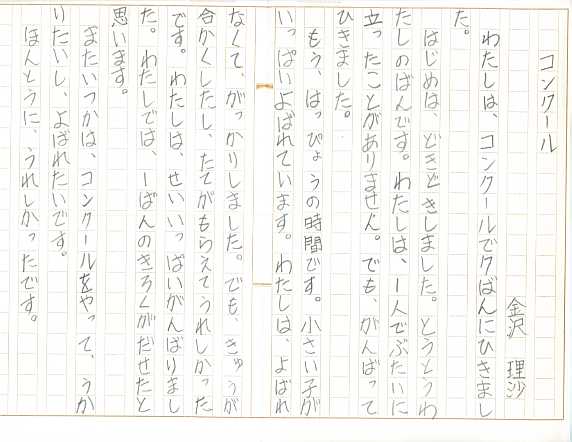 コンクール
金沢 理沙
わたしは、コンクールでクばんにひきまし
た。
はじめは、どきどきしました。とうとうわ
たしのばんです。わたしは、1人でぶたいに
立ったことがありません。でも、がんばって
ひきました。
もう、はっぴょうの時間です。小さい子が
いっぱいよばれています。わたしは、よばれ
なくて、がっかりしました。でも、きゅうが
合かくしたし、たてがもらえてうれしかった
です。わたしは、せいいっぱいがんばりまし
た。わたしでは、一ばんのきろくがだせたと
思います。
またいつかは、コンクールをやって、うか
りたいし、よばれたいです。
ほんとうに、うれしかったです。